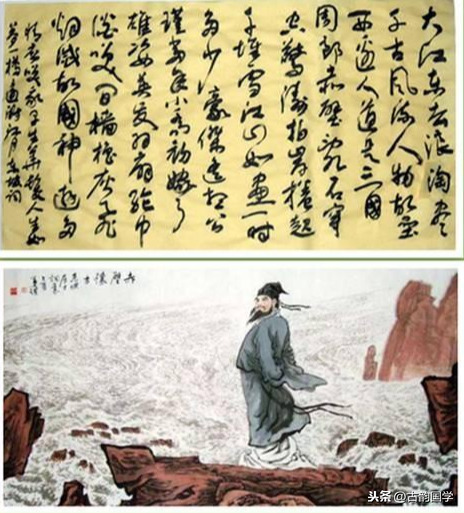 大江东去浪淘尽
千古风流人物故垒
西边人道是三国
周郎赤壁乱石穿
空惊涛拍岸捲起
千堆雪江山如画一时
多少豪傑遥想公
瑾当年小乔初嫁了
雄姿英发羽扇纶巾
谈笑间樯橹灰飞
烟灭故国神遊多
情应笑我早生华髮人生如
梦一樽还酹江月东坡词
赤壁怀古
头条@古韵国学